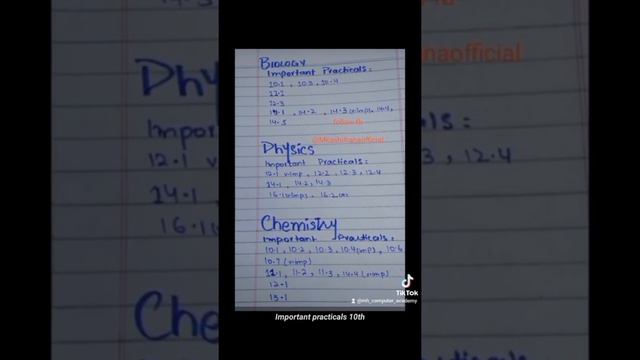 BIOLOGY
Important Practicals:
10.1, 10.3, 10.4
11.1
12.3
14.1, 14.2, 14.3 (v.imp), 14.4,
14.5
follow fb
@Mhashifanaofficial
Physics
Important Practicals:
12.1 v.imp, 12.2, 12.3, 12.4
14.1, 14.2, 14.3
16.1 (v.imp), 16.2
Chemistry
Important Practicals:
10.1, 10.2, 10.3, 10.4 (imp), 10.6
10.7 (v.imp)
11.1, 11.2, 11.3, 14.4 (v.imp)
12.1
13.1
TikTok
@mh_computer_academy
Important practicals 10th